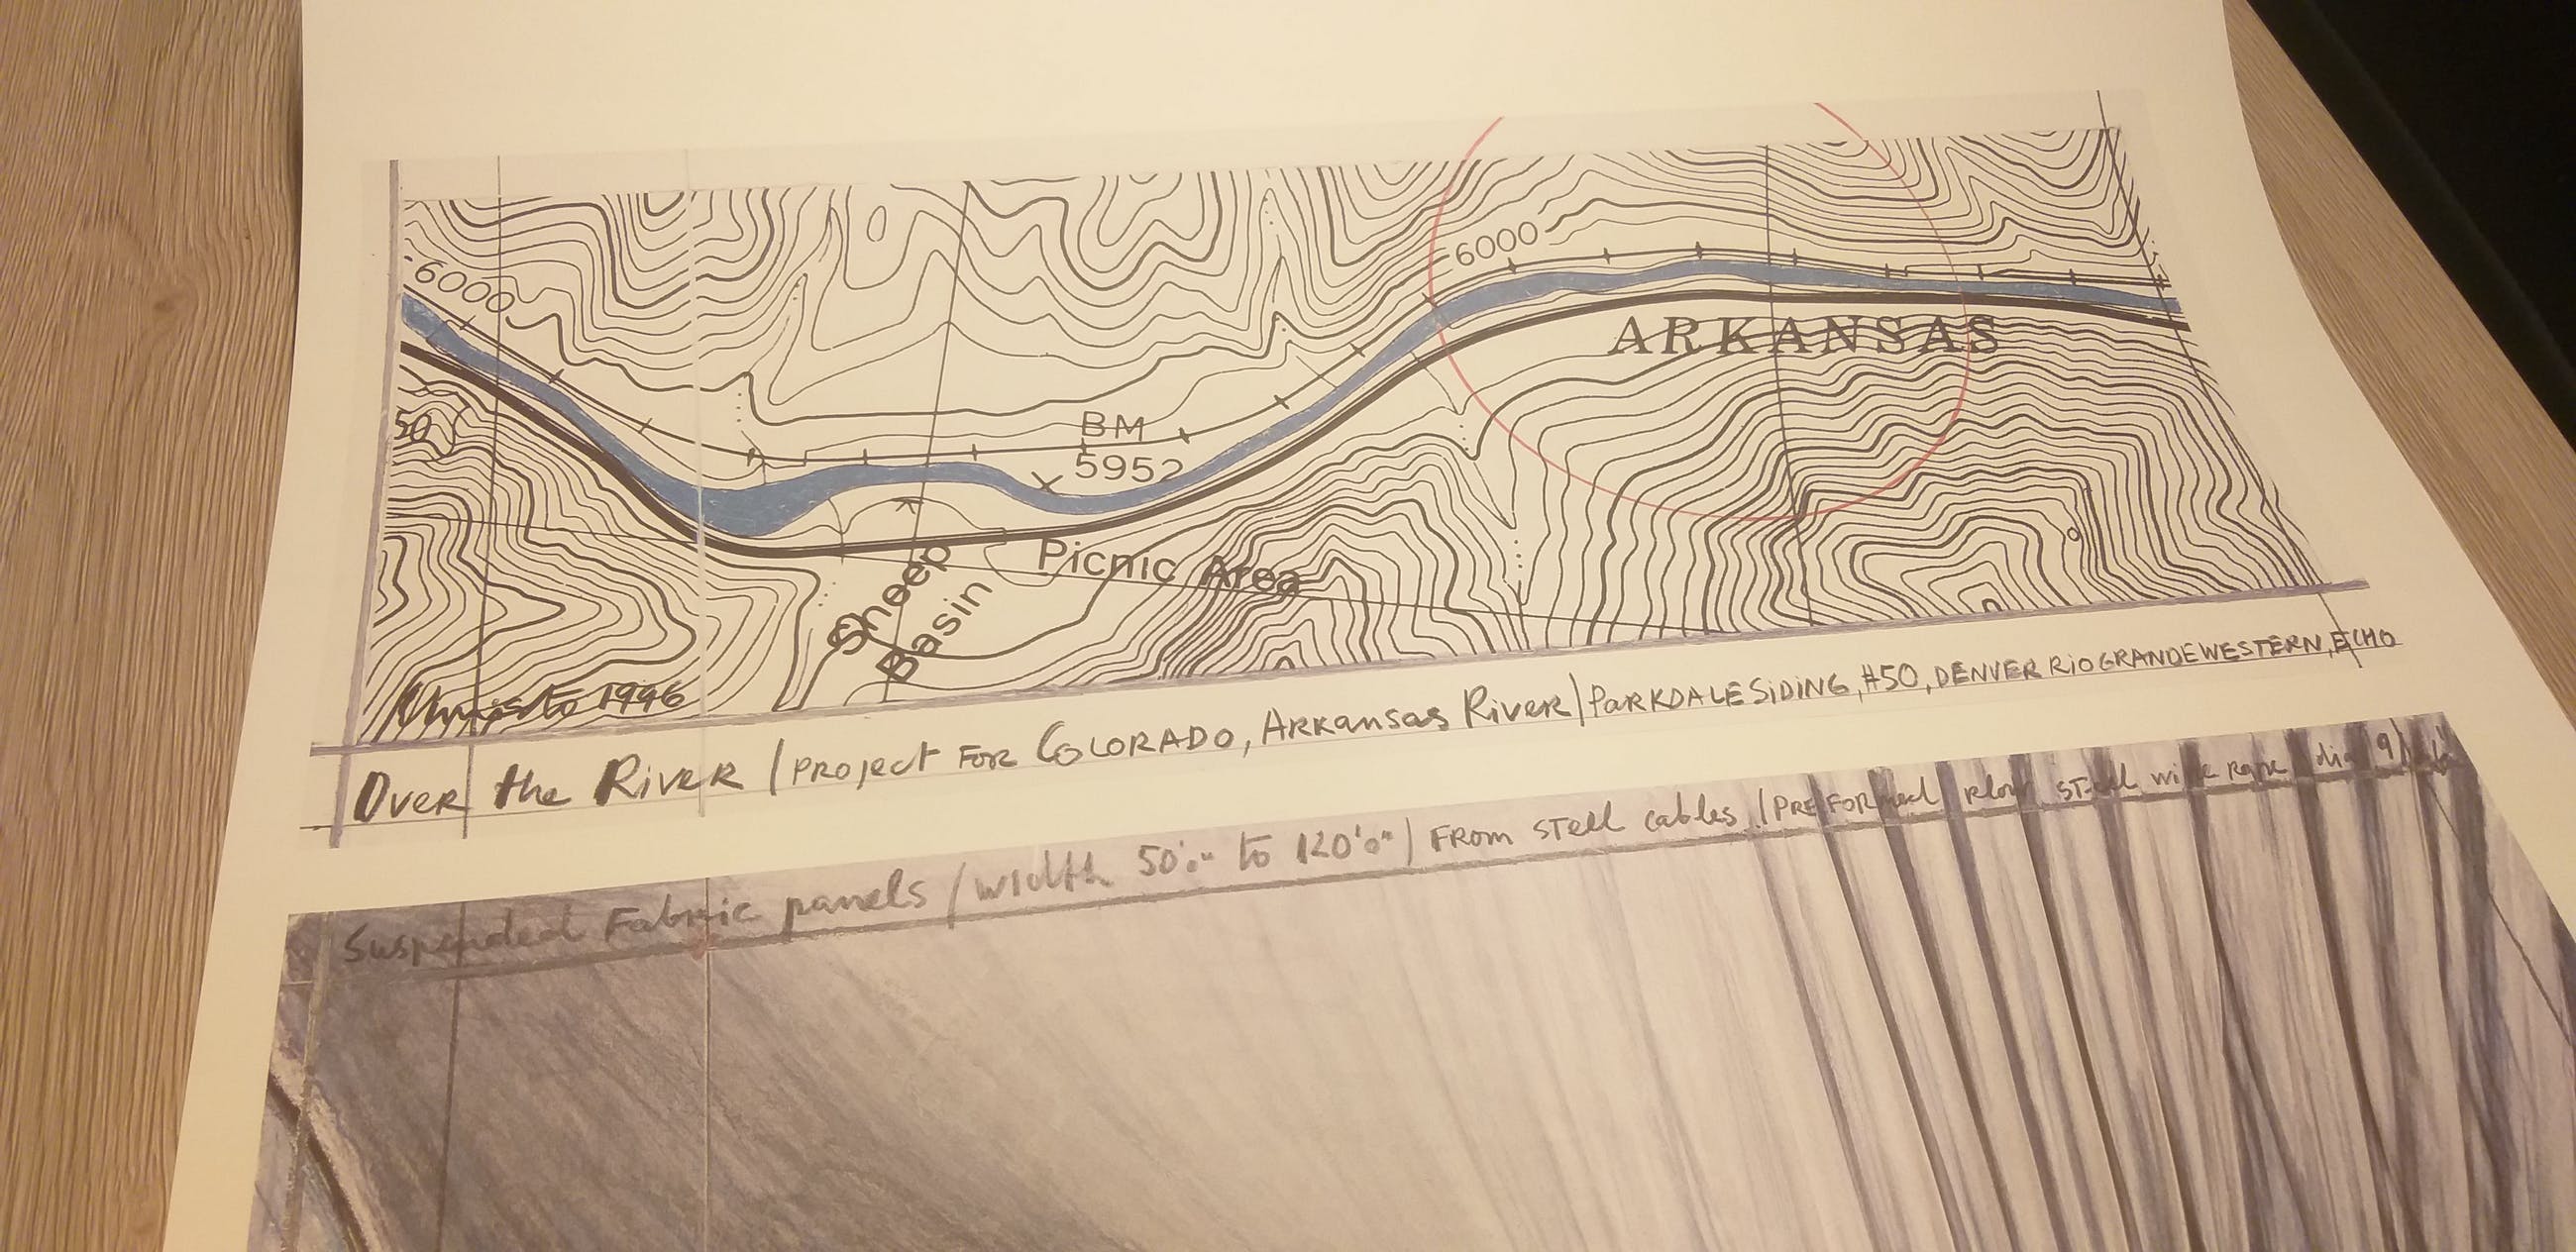 6000
6000
ARKANSAS
50
BM
5952
Picnic Area
Sheep
Basin
Christo 1996
Over the River / PROJECT FOR COLORADO, ARKANSAS RIVER / PARKDALE SIDING, #50, DENVER RIO GRANDE WESTERN, ECHO
Suspended Fabric panels / width 50'0" to 120'0" / FROM STEEL cables / PREFORMED plow STEEL wire rope dia 9/